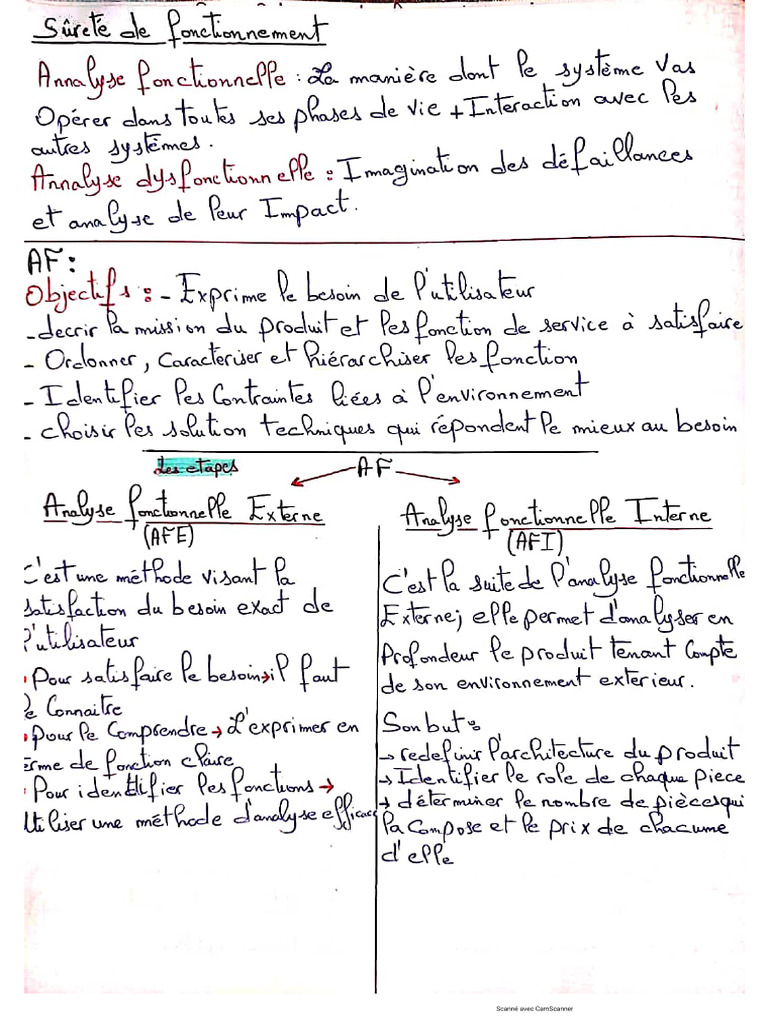 Sûreté de fonctionnement
Annalyse fonctionnelle : La manière dont le système vas
Opérer dans toutes ses phases de vie + Interaction avec les
autres systèmes.
Annalyse dysfonctionnelle : Imagination des défaillances
et analyse de leur Impact.
AF :
Objectifs : - Exprime le besoin de l'utilisateur
- decrir la mission du produit et les fonction de service à satisfaire
- Ordonner, Caracteriser et hiérarchiser les fonction
- Identifier les Contraintes liées à l'environnement
- choisir les solution techniques qui répondent le mieux au besoin
Les etapes AF
Analyse fonctionnelle Externe
(AFE)
C'est une méthode visant la
satisfaction du besoin exact de
l'utilisateur
Pour satisfaire le besoin → il faut
le Connaitre
Pour le Comprendre → L'exprimer en
erme de fonction claire
Pour identifier les fonctions →
Utiliser une méthode d'analyse efficace
Analyse fonctionnelle Interne
(AFI)
C'est la suite de l'analyse fonctionnelle
Externe; elle permet d'analyser en
Profondeur le produit tenant Compte
de son environnement exterieur.
Son but :
→ redefinir l'architecture du produit
→ Identifier le role de chaque piece
→ déterminer le nombre de pièces qui
la Compose et le prix de chacume
d'elle
Scanné avec CamScanner